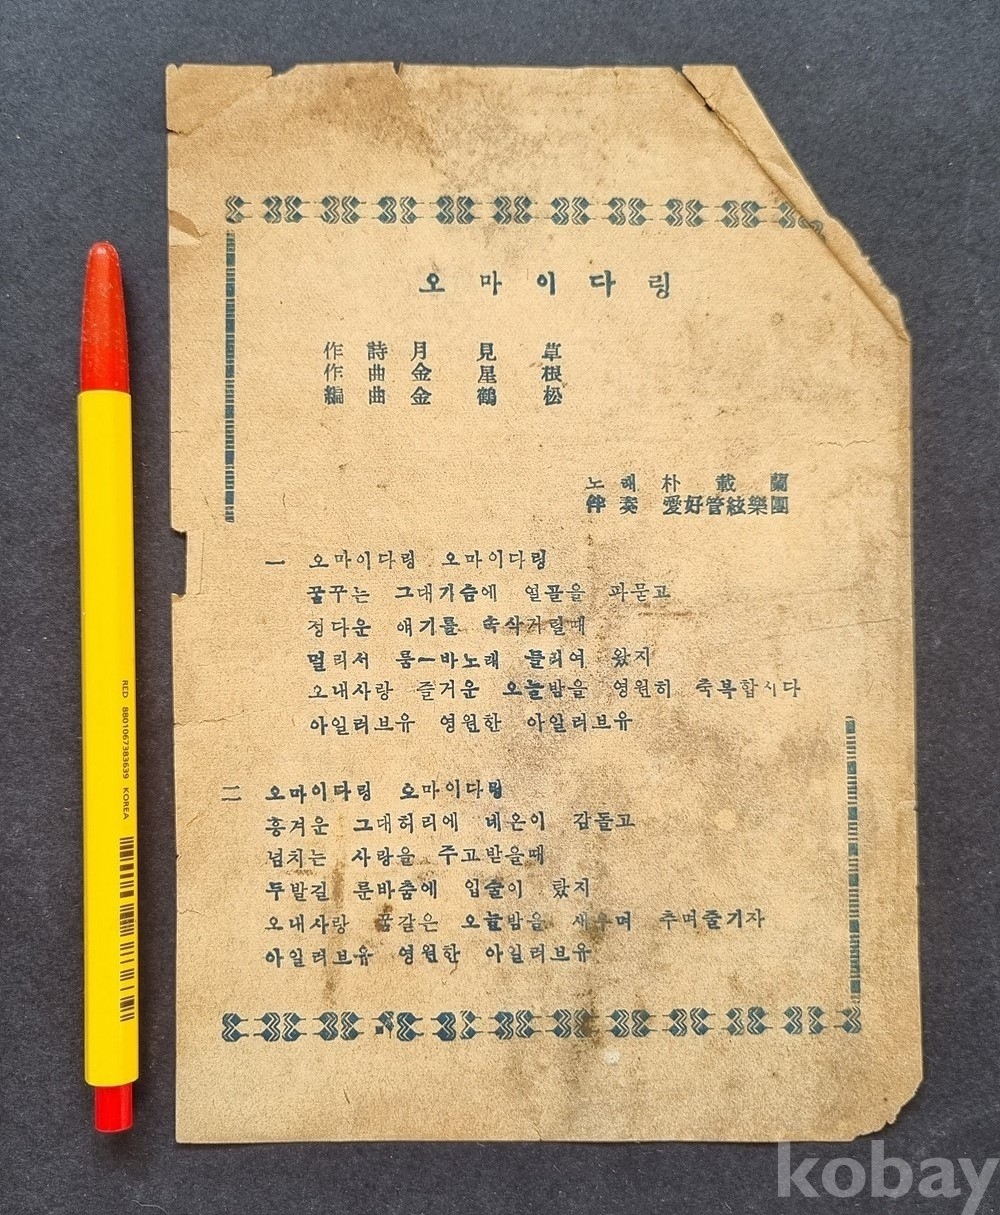 오마이다링
作詩 月見草
作曲 金星根
編曲 金鶴松
노래 朴載蘭
伴奏 愛好管絃樂團
一 오마이다링 오마이다링
꿈꾸는 그대가슴에 얼골을 파묻고
정다운 얘기를 속삭거릴때
멀리서 룸ー바노래 들리여 왔지
오내사랑 즐거운 오늘밤을 영원히 축복합시다
아일러브유 영원한 아일러브유
二 오마이다링 오마이다링
흥겨운 그대허리에 네온이 감돌고
넘치는 사랑을 주고받을때
두발길 룬바춤에 입술이 탔지
오내사랑 꿈같은 오늘밤을 새우며 추며줄기자
아일러브유 영원한 아일러브유
RED 8801067383639 KOREA
kobay